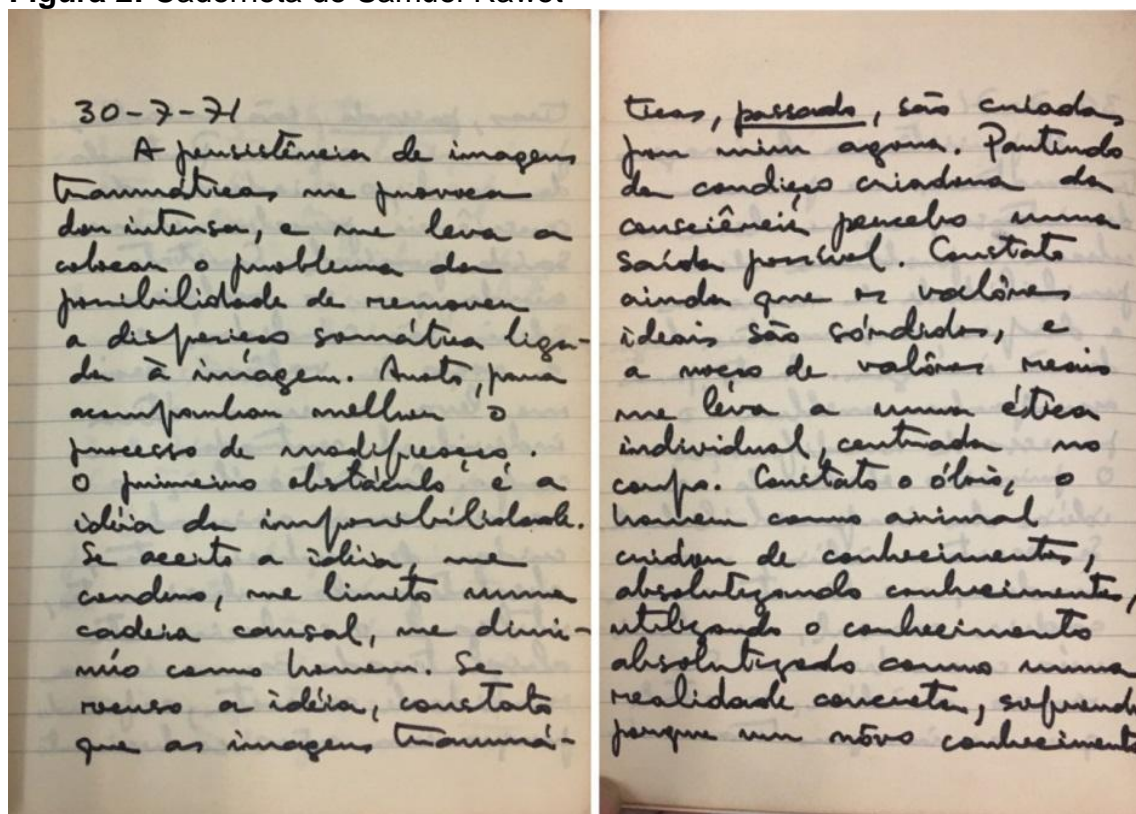 Figura 2: Caderneta de Samuel Rawet
30-7-71
A persistência de imagens
traumáticas me provoca
dor intensa, e me leva a
colocar o problema da
possibilidade de remover
a disposição somática liga-
da à imagem. Anoto, para
acompanhar melhor o
processo de modificação.
O primeiro obstáculo é a
idéia da impossibilidade.
Se aceito a idéia, me
condeno, me limito numa
cadeia causal, me dimi-
núo como homem. Se
recuso a idéia, constato
que as imagens traumá-
ticas, passado, são criadas
por mim agora. Partindo
da condição criadora da
consciência percebo uma
saída possível. Constato
ainda que os valôres
ideais são sórdidos, e
a noção de valôres reais
me leva a uma ética
individual, centrada no
corpo. Constato o óbvio, o
homem como animal
criador de conhecimentos,
absolutizando conhecimentos,
utilizando o conhecimento
absolutizado como uma
realidade concreta, sofrendo
porque um nôvo conhecimento